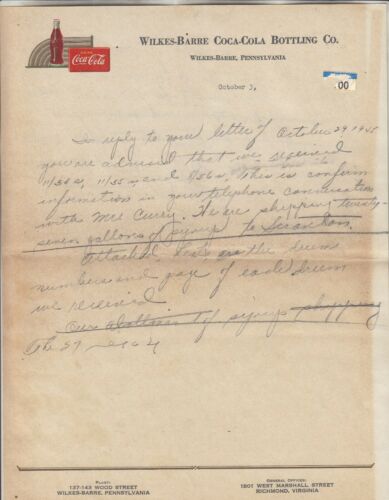 DRINK
Coca-Cola
WILKES-BARRE COCA-COLA BOTTLING CO.
WILKES-BARRE, PENNSYLVANIA
October 3,
.00
In reply to your letter of October 29 1945
you are advised that we received
11/54s, 11/55s, and 1/56s. This is confirm
information in your telephone conversation
with Mrs Curry. We are shipping twenty-
seven gallons of syrup to Scranton.
Attached list are the drum
numbers and gage of each drum
we received
Our of syrup shipping
The 27
PLANT:
137-143 WOOD STREET
WILKES-BARRE, PENNSYLVANIA
GENERAL OFFICES:
1801 WEST MARSHALL STREET
RICHMOND, VIRGINIA